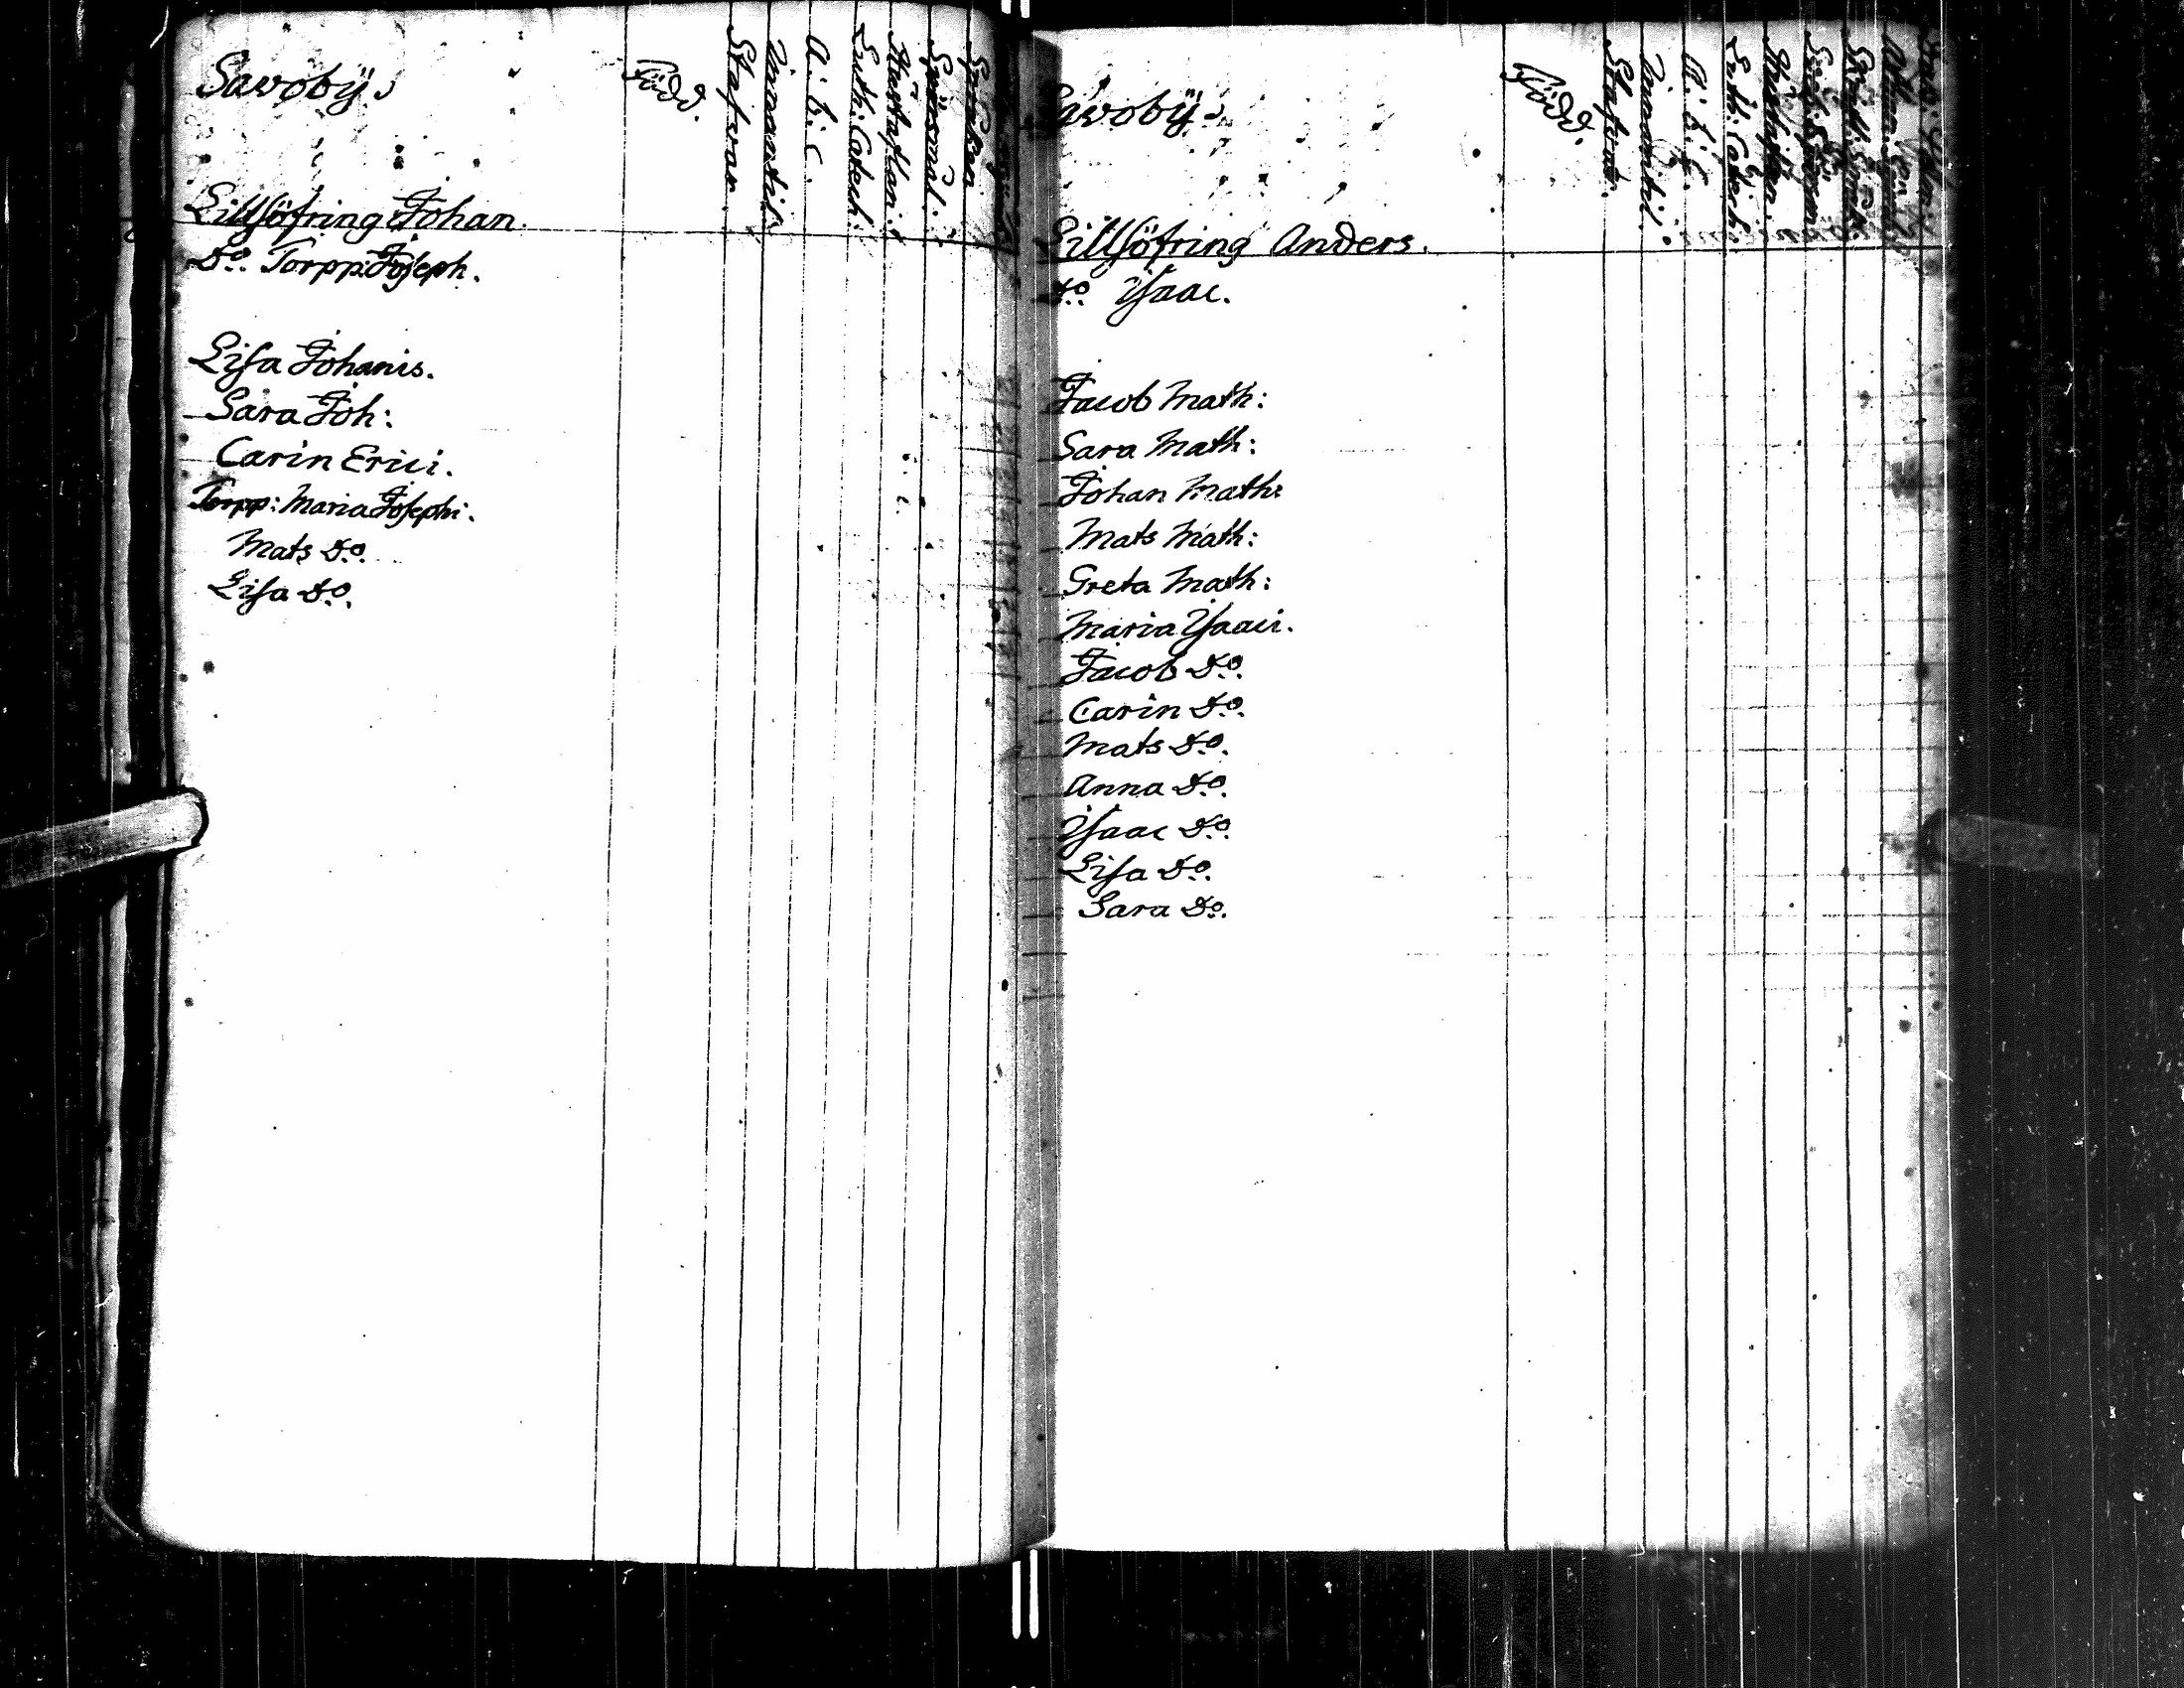 Savobÿ.
Född.
Stafvar.
Innantil.
A: B: C.
Luth: Catech:
Hustaflan:
Spörsmål:
Lillsöfring Johan.
Do. Torpp: Joseph.
Lisa Johanis.
Sara Joh:
Carin Erici.
Torpp: Maria Josephi.
Mats Do.
Lisa Do.
Savobÿ.
Född.
Stafvar.
Innantil.
A: B: C.
Luth: Catech:
Hustaflan.
Lillsöfring Anders.
Do Isaac.
Jacob Math:
Sara Math:
Johan Math:
Mats Math:
Greta Math:
Maria Isaaci.
Jacob Do.
Carin Do.
Mats Do.
Anna Do.
Isaac Do.
Lisa Do.
Sara Do.